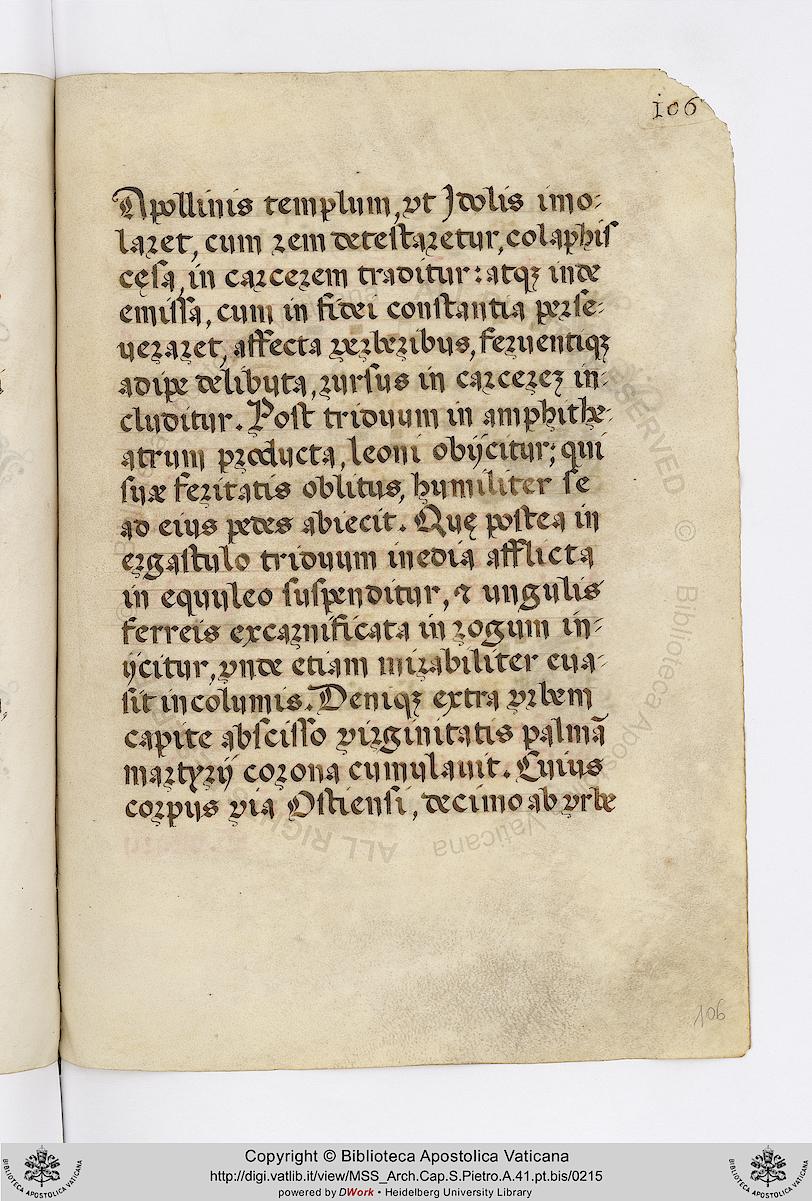 106
Apollinis templum, vt Idolis imo-
laret, cum rem detestaretur, colaphis
cęsa, in carcerem traditur: atqꝫ inde
emissa, cum in fidei constantia perse-
ueraret, affecta verberibus, feruentiqꝫ
adipe delibuta, rursus in carcerez in-
cluditur. Post triduum in amphithe-
atrum producta, leoni obijcitur; qui
suæ feritatis oblitus, humiliter se
ad eius pedes abiecit. Quę postea in
ergastulo triduum inedia afflicta
in equuleo suspenditur, ⁊ ungulis
ferreis excarnificata in rogum in-
ijcitur, vnde etiam mirabiliter eua-
sit incolumis. Deniqꝫ extra vrbem
capite abscisso virginitatis palmā
martyrij corona cumulauit. Cuius
corpus via Ostiensi, decimo ab vrbe
106
ALL RIGHTS RESERVED © Biblioteca Apostolica Vaticana
BIBLIOTECA APOSTOLICA VATICANA
Copyright © Biblioteca Apostolica Vaticana
http://digi.vatlib.it/view/MSS_Arch.Cap.S.Pietro.A.41.pt.bis/0215
powered by DWork • Heidelberg University Library
BIBLIOTECA APOSTOLICA VATICANA